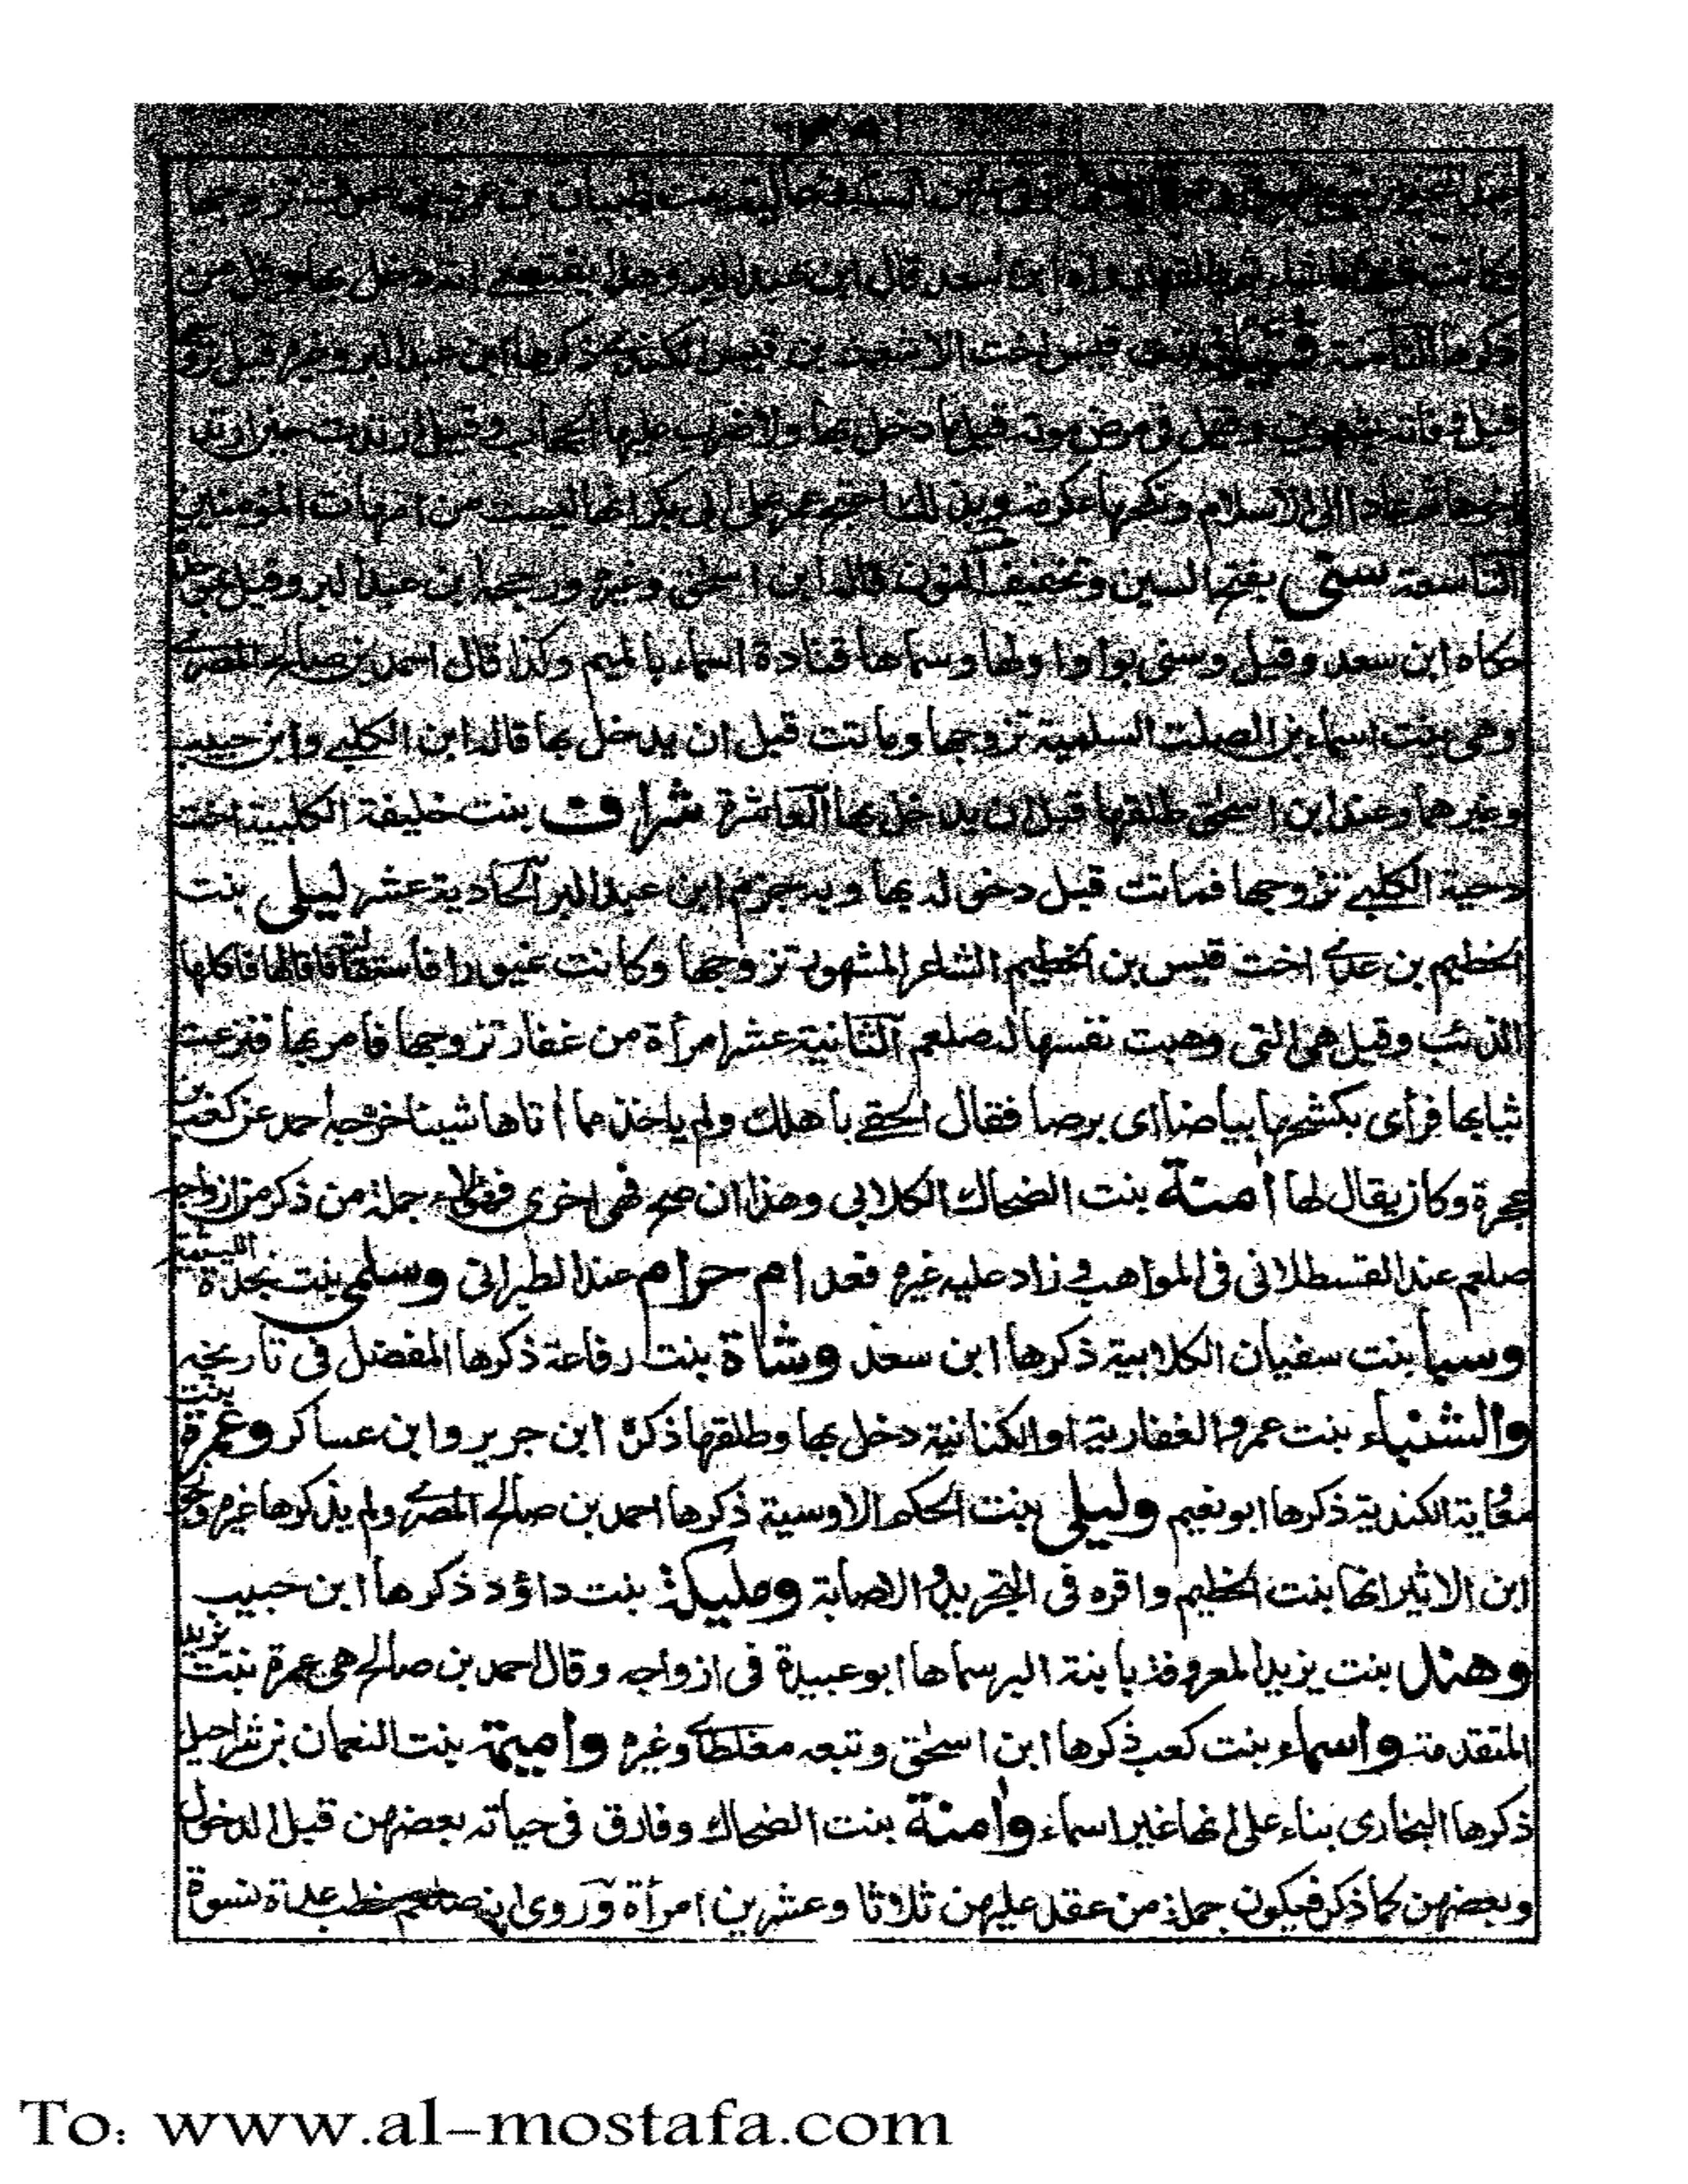 بنت ظبيان بن عمرو بن عوف تزوجها
وكانت عنده ما شاء ثم طلقها رواه ابن سعد قال ابن عبد البر وهذا يقتضى انه دخل بها وقل من
ذكرها الثامنة قتيلة بنت قيس اخت الاشعث بن قيس الكندى ذكرها ابن عبد البر وغيره قيل تزوجها
قبل وفاته بشهرين وقيل فى مرض موته قبل ما دخل بها ولا ضرب عليها الحجاب وقيل ارتدت حين ارتد
اخوها ثم عادا الى الاسلام ونكحها عكرمة وبذلك احتج عمر على ابى بكر انها ليست من امهات المؤمنين
التاسعة سنى بفتح السين وتخفيف النون قاله ابن اسحق وغيره ورجحه ابن عبد البر وقيل
حكاه ابن سعد وقيل وسنى بواو اولها وسماها قتادة اسماء بالميم وكذا قال احمد بن صالح المصرى
وهى بنت اسماء بن الصلت السلمية تزوجها وماتت قبل ان يدخل بها قاله ابن الكلبى وابن حبيب
وغيرهما وعند ابن اسحق طلقها قبل ان يدخل بها العاشرة شراف بنت خليفة الكلبية اخت
دحية الكلبى تزوجها فماتت قبل دخوله بها وبه جزم ابن عبد البر الحادية عشر ليلى بنت
الخطيم بن عدى اخت قيس بن الخطيم الشاعر المشهور تزوجها وكانت غيورا فاستقالته فاقالها فاكلها
الذئب وقيل هى التى وهبت نفسها له صلعم الثانية عشر امرأة من غفار تزوجها فامر بها فنزعت
ثيابها فرأى بكشحها بياضا اى برصا فقال الحقى باهلك ولم ياخذ مما أتاها شيئا خرجه احمد عن كعب بن
عجرة وكان يقال لها أمنة بنت الضحاك الكلابى وهذا ان صح فهى اخرى فهؤلاء جملة من ذكر من ازواجه
صلعم عند القسطلانى فى المواهب وزاد عليه غيره فعد ام حرام عند الطبرانى وسلمى بنت نجدة الليثية
وسبا بنت سفيان الكلابية ذكرها ابن سعد وشاة بنت رفاعة ذكرها المفضل فى تاريخه
والشنباء بنت عمرو الغفارية او الكنانية دخل بها وطلقها ذكره ابن جرير وابن عساكر وعمرة بنت
معاية الكندية ذكرها ابو نعيم وليلى بنت الحكم الاوسية ذكرها احمد بن صالح المصرى ولم يذكرها غيره وجوز
ابن الاثير انها بنت الخطيم واقره فى التجريد والاصابة ومليكة بنت داؤد ذكرها ابن حبيب
وهند بنت يزيد المعروفة بابنة البرسماها ابو عبيدة فى ازواجه وقال احمد بن صالح هى عمرة بنت يزيد
المتقدمة واسماء بنت كعب ذكرها ابن اسحق وتبعه مغلطاى وغيره واميمة بنت النعمان بن شراحيل
ذكرها البخارى بناء على انها غير اسماء وأمنة بنت الضحاك وفارق فى حياته بعضهن قبل الدخول
وبعضهن كما ذكر فيكون جملة من عقد عليهن ثلاثا وعشرين امرأة وروى انه صلعم خطب عدة نسوة
To: www.al-mostafa.com